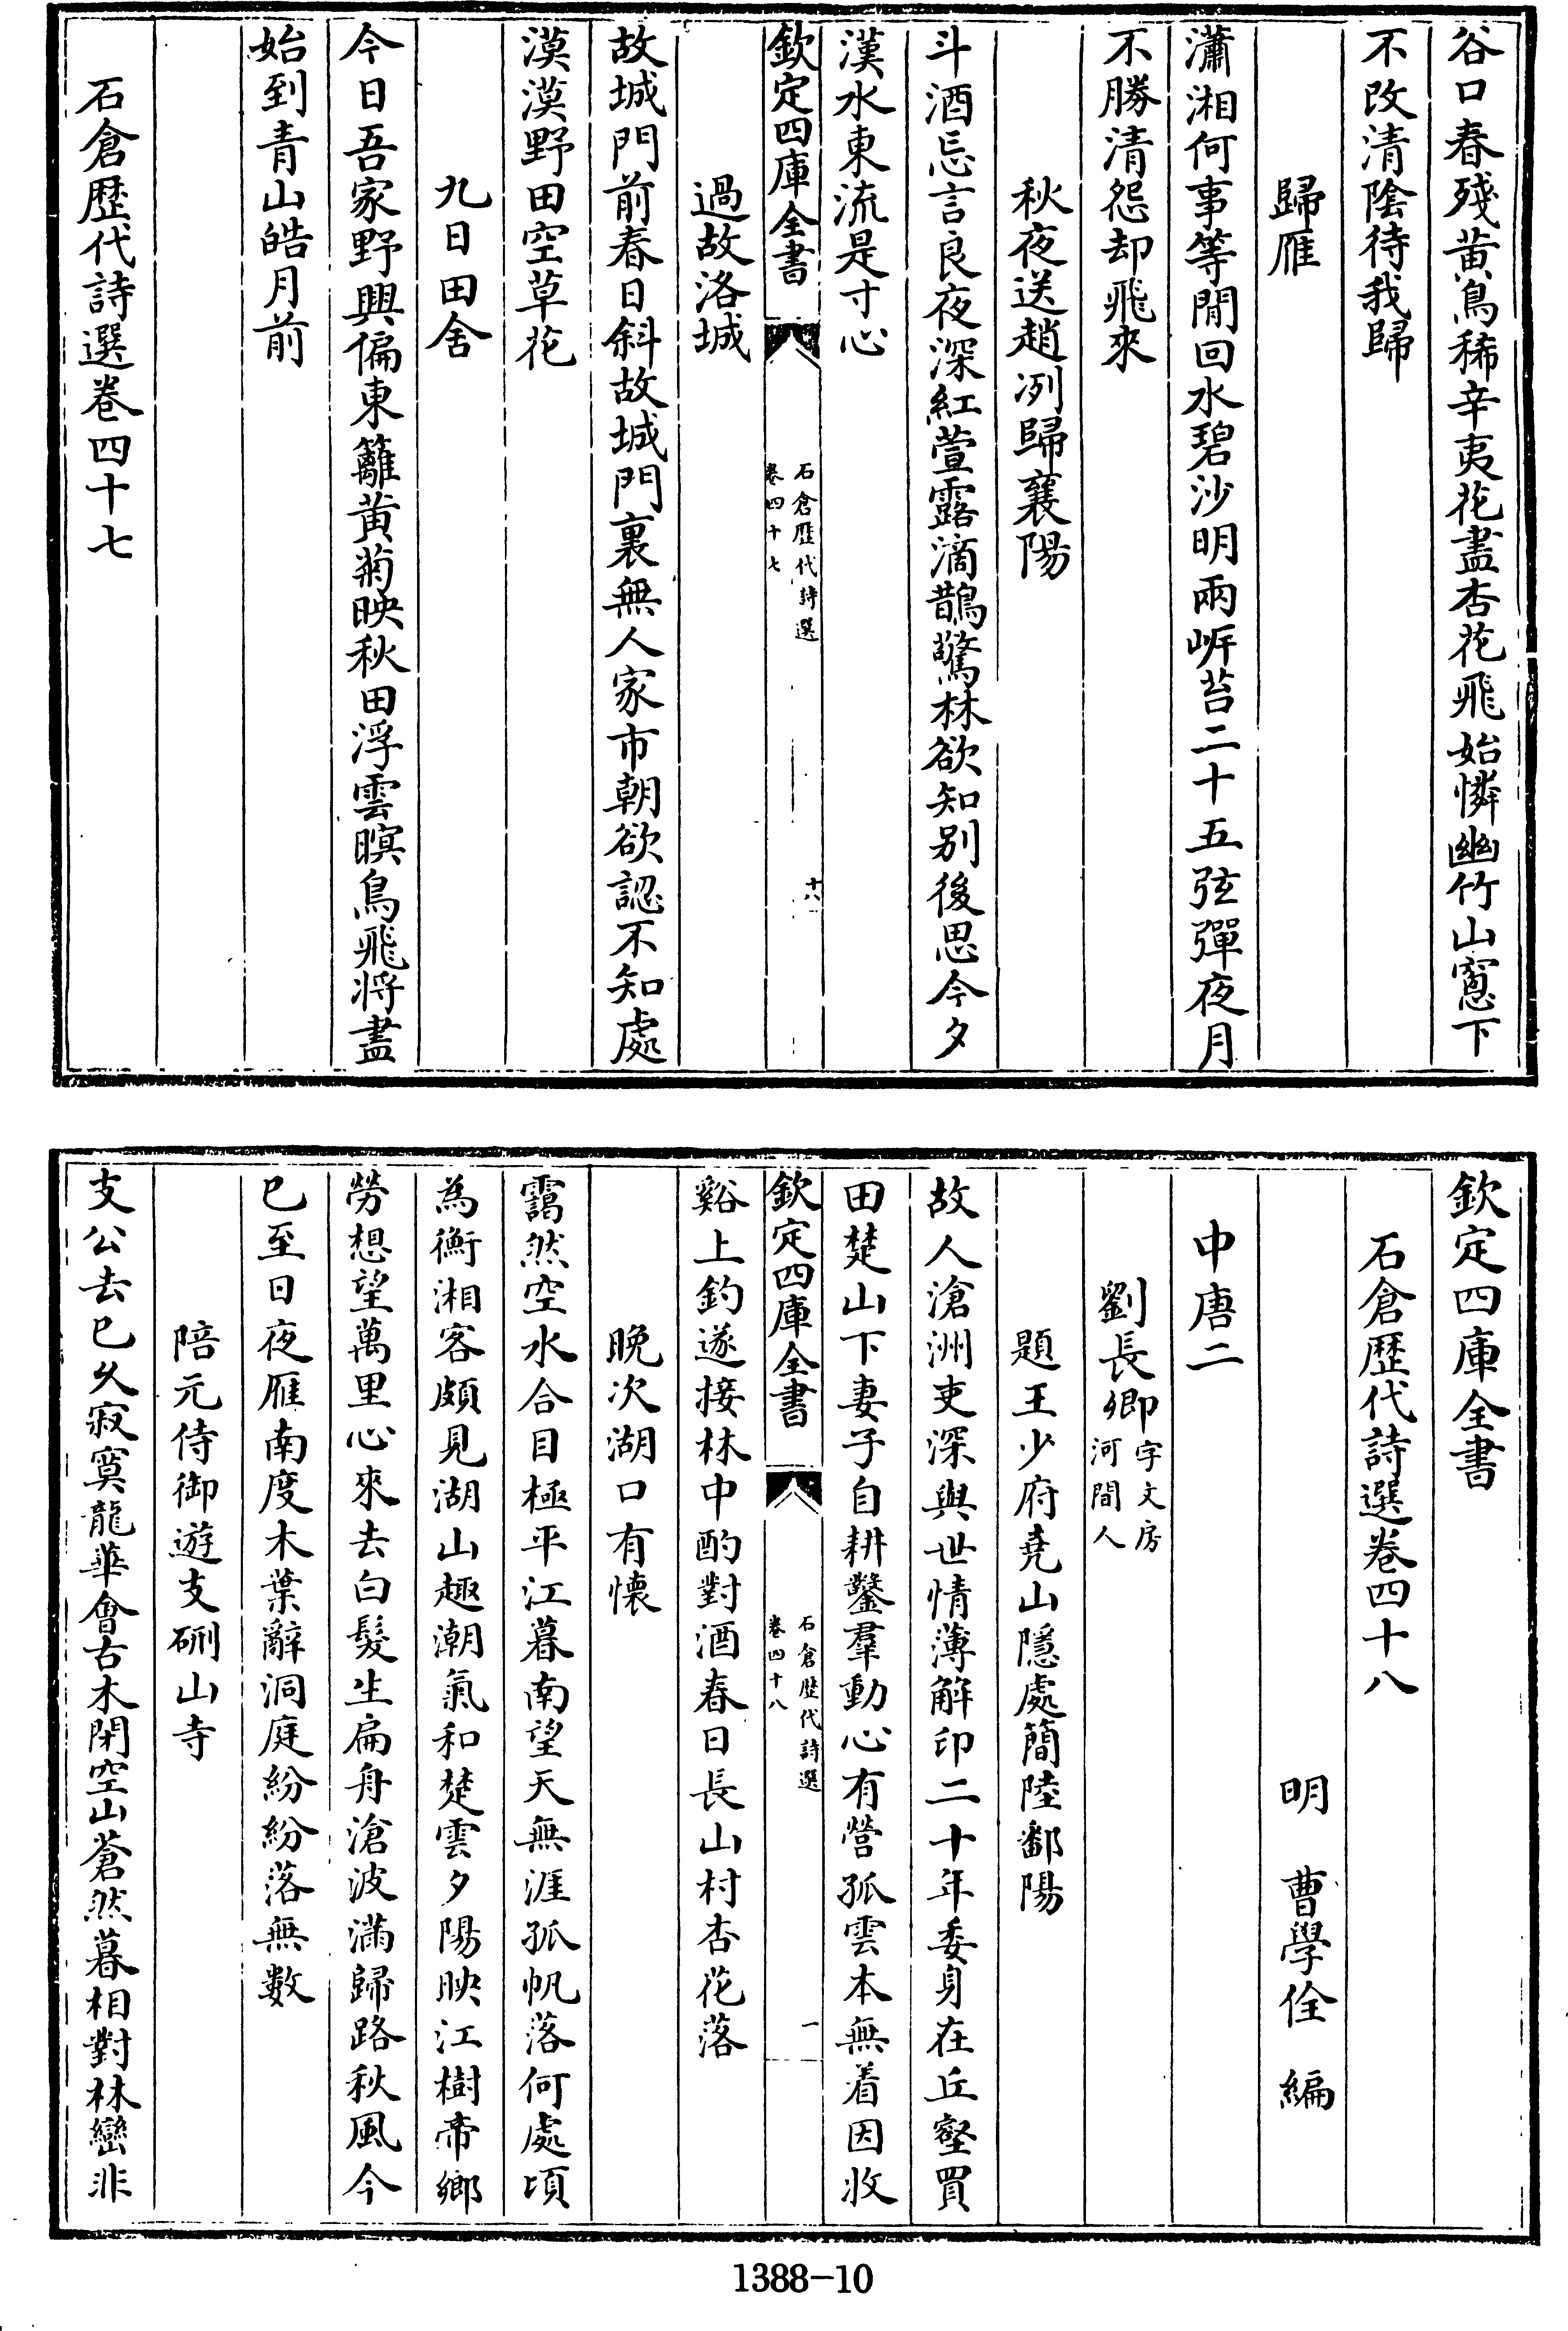 谷口春殘黃鳥稀辛夷花盡杏花飛始憐幽竹山窻下
不改清陰待我歸
歸雁
瀟湘何事等閒回水碧沙明兩岍苔二十五弦彈夜月
不勝清怨却飛來
秋夜送趙冽歸襄陽
斗酒忘言良夜深紅萱露滴鵲驚林欲知别後思今夕
漢水東流是寸心
欽定四庫全書
石倉歷代詩選
卷四十七
十八
過故洛城
故城門前春日斜故城門裏無人家市朝欲認不知處
漠漠野田空草花
九日田舍
今日吾家野興偏東籬黃菊映秋田浮雲暝鳥飛将盡
始到青山皓月前
石倉歷代詩選卷四十七
欽定四庫全書
石倉歷代詩選卷四十八
明 曹學佺 編
中唐二
劉長卿字文房河間人
題王少府堯山隱處簡陸鄱陽
故人滄洲吏深與世情薄解印二十年委身在丘壑買
田楚山下妻子自耕鑿羣動心有營孤雲本無着因收
谿上釣遂接林中酌對酒春日長山村杏花落
欽定四庫全書
石倉歷代詩選
卷四十八
一
晚次湖口有懐
靄然空水合目極平江暮南望天無涯孤帆落何處頃
為衡湘客頗見湖山趣潮氣和楚雲夕陽映江樹帝鄉
勞想望萬里心來去白髮生扁舟滄波滿歸路秋風今
已至日夜雁南度木葉辭洞庭紛紛落無數
陪元侍御遊支硎山寺
支公去已乆寂寞龍華會古木閉空山蒼然暮相對林巒非
1388-10